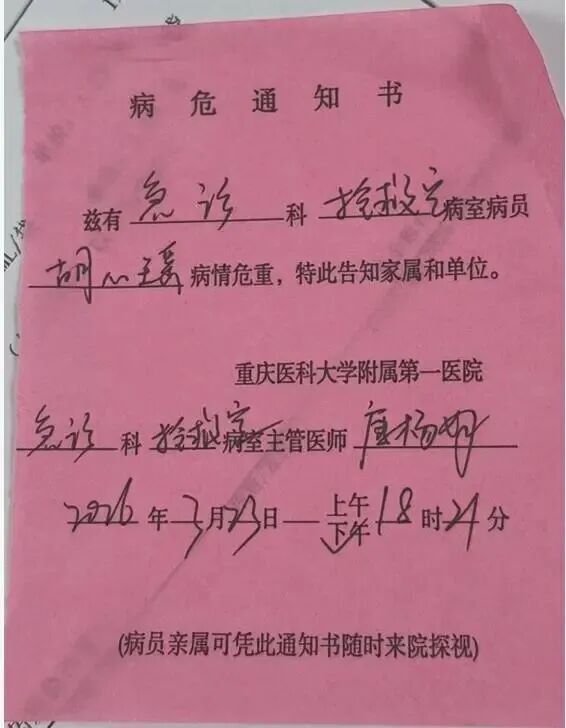 病危通知书
兹有 急诊 科 抢救室 病室病员
胡心瑶 病情危重，特此告知家属和单位。
重庆医科大学附属第一医院
急诊 科 抢救室 病室主管医师
2026 年 3 月 23 日 上午 下午 18 时 21 分
(病员亲属可凭此通知书随时来院探视)